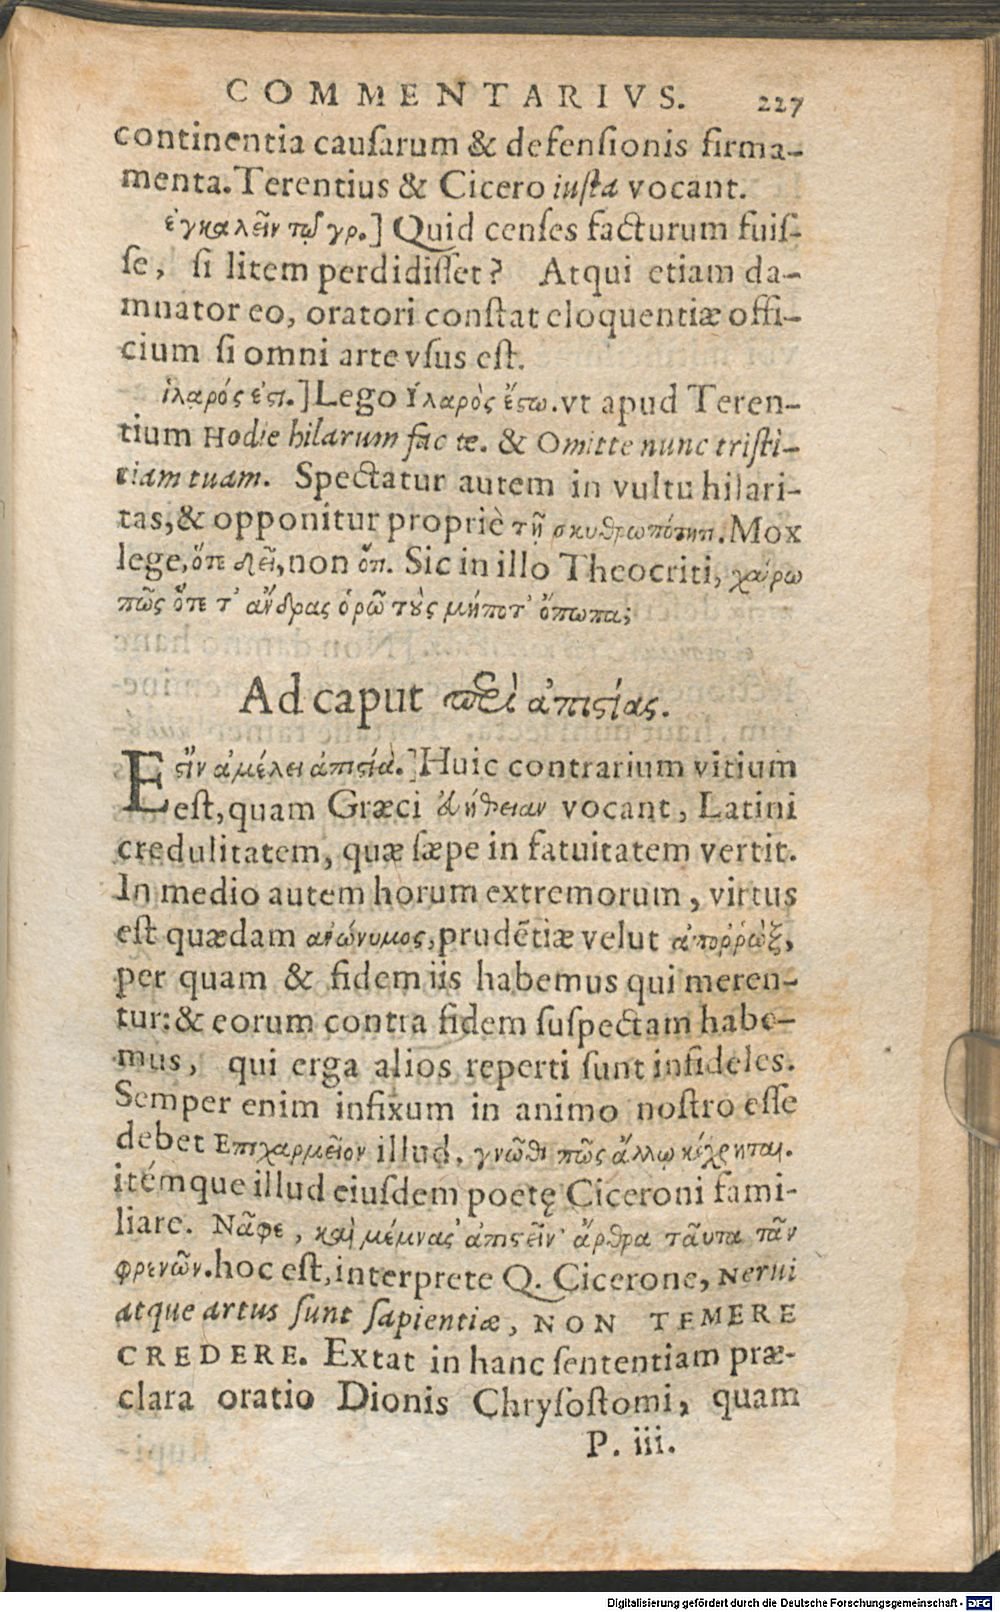 COMMENTARIVS. 227
continentia cauſarum & defenſionis firma-
menta. Terentius & Cicero iuſta vocant.
ἐγκαλεῖν τῷ γρ.] Quid cenſes facturum fuiſ-
ſe, ſi litem perdidiſſet? Atqui etiam da-
mnator eo, oratori conſtat eloquentiæ offi-
cium ſi omni arte vſus eſt.
ἱλαρός ἐςι.] Lego ἱλαρὸς ἔςω. vt apud Teren-
tium Hodie hilarum fac te. & Omitte nunc triſti-
tiam tuam. Spectatur autem in vultu hilari-
tas, & opponitur propriè τῇ σκυθρωπότητι. Mox
lege, ὅτε δεῖ, non ὅτι. Sic in illo Theocriti, χαίρω
πῶς ὅτε τ' ἄνδρας ὁρῶ τοὺς μήποτ' ὄπωπα;
Ad caput περὶ ἀπιςίας.
Εςιν ἀμέλει ἀπιςία.] Huic contrarium vitium
eſt, quam Græci ἐυήθειαν vocant, Latini
credulitatem, quæ ſæpe in fatuitatem vertit.
In medio autem horum extremorum, virtus
eſt quædam ἀνώνυμος, prudẽtiæ velut ἀποῤῥὼξ,
per quam & fidem iis habemus qui meren-
tur: & eorum contra fidem ſuſpectam habe-
mus, qui erga alios reperti ſunt infideles.
Semper enim infixum in animo noſtro eſſe
debet Επιχαρμεῖον illud, γνῶθι πῶς ἄλλῳ κέχρηται.
itémque illud eiuſdem poetę Ciceroni fami-
liare. Νᾶφε, καὶ μέμνας' ἀπιςεῖν· ἄρθρα ταῦτα τᾶν
φρενῶν. hoc eſt, interprete Q. Cicerone, Nerui
atque artus ſunt ſapientiæ, NON TEMERE
CREDERE. Extat in hanc ſententiam præ-
clara oratio Dionis Chryſoſtomi, quam
P. iii.
Digitalisierung gefördert durch die Deutsche Forschungsgemeinschaft - DFG